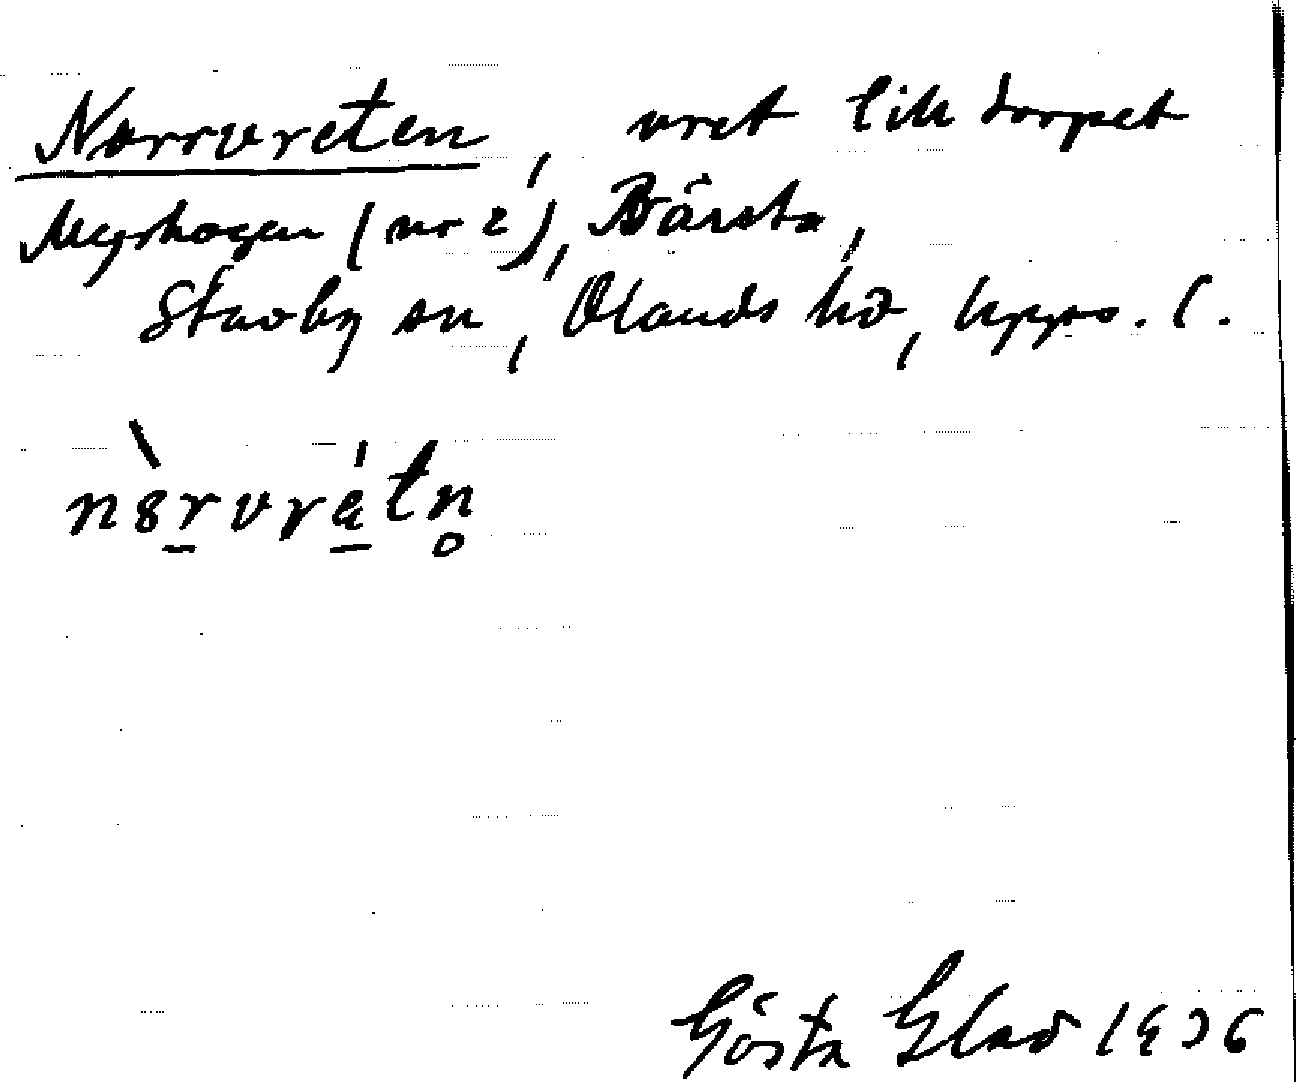 Norrvreten, vret till torpet
Myrhagen (nr 2), Bärsta,
Stavby sn, Olands hd, Upps. l.
nȣ̀rvrétn̥
Gösta Glad 1936